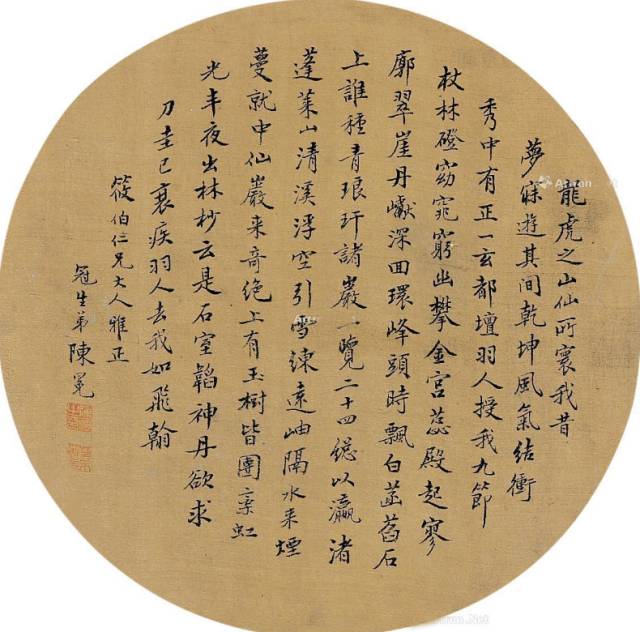 龍虎之山仙所寰我昔
夢寐遊其間乾坤風氣結衝
秀中有正一玄都壇羽人授我九節
杖林磴窈窕窮幽攀金宮蕊殿起寥
廓翠崖丹巘深回環峰頭時飄白菡萏石
上誰種青琅玕諸巖一覽二十四總以瀛渚
蓬萊山清溪浮空引雪練遠岫隔水來煙
鬟就中仙巖来奇絕上有玉樹皆團欒虹
光半夜出林杪云是石室韜神丹欲求
刀圭已衰疾羽人去我如飛翰
筱伯仁兄大人雅正
冠生弟陳冕